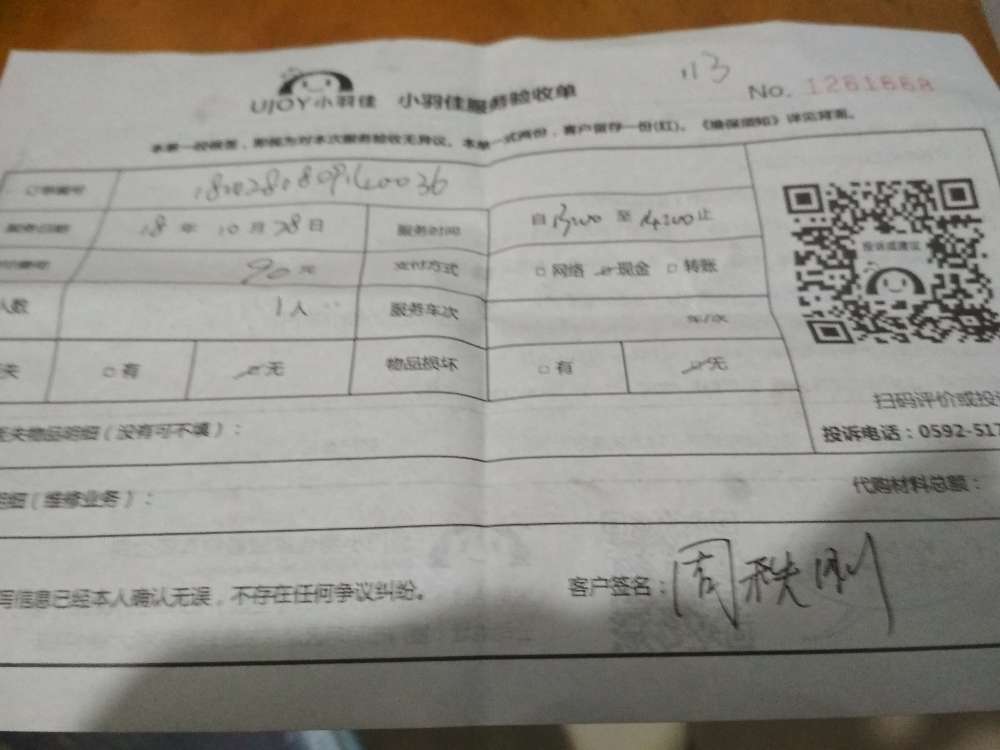 113
UJOY小羽佳 小羽佳服务验收单 No. 1261668
本单一经核签，即视为对本次服务验收无异议。本单一式两份，客户留存一份(红)。《维保须知》详见背面。
订单编号
服务日期 18年10月28日 服务时间 自13:00至14:00止
90元 支付方式 □网络 ☑现金 □转账
人数 1人 服务车次 车/次
失 □有 ☑无 物品损坏 □有 ☑无
投诉或建议
扫码评价或投
投诉电话：0592-517
失物品明细（没有可不填）：
明细（维修业务）： 代购材料总额：
写信息已经本人确认无误，不存在任何争议纠纷。 客户签名：周秩